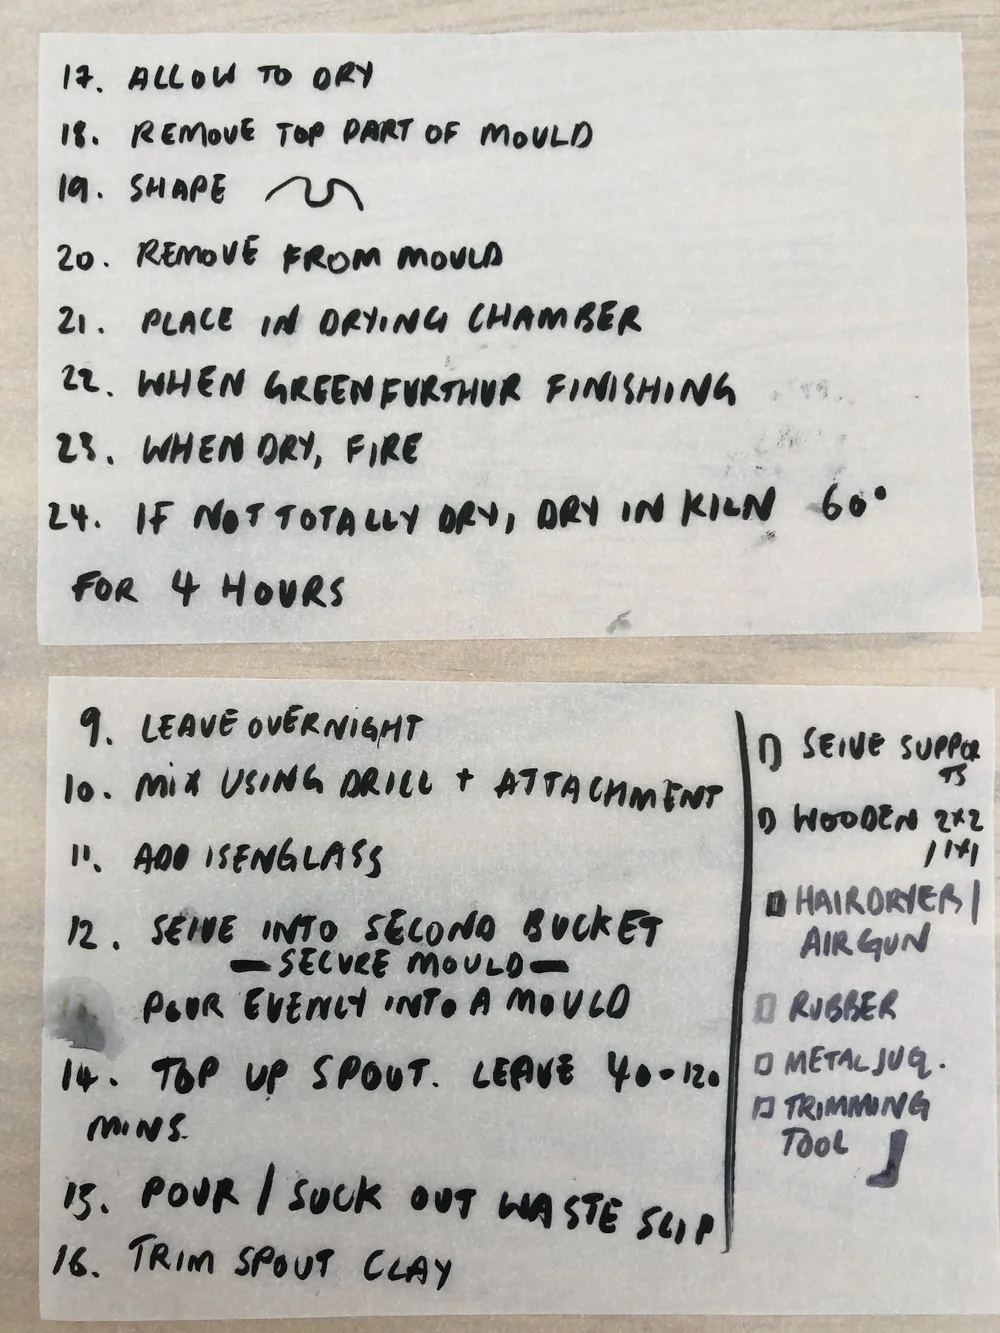 17. ALLOW TO DRY
18. REMOVE TOP PART OF MOULD
19. SHAPE
20. REMOVE FROM MOULD
21. PLACE IN DRYING CHAMBER
22. WHEN GREEN FURTHUR FINISHING
23. WHEN DRY, FIRE
24. IF NOT TOTALLY DRY, DRY IN KILN 60°
FOR 4 HOURS
9. LEAVE OVERNIGHT
10. MIX USING DRILL + ATTACHMENT
11. ADD ISENGLASS
12. SEIVE INTO SECOND BUCKET
— SECURE MOULD —
POUR EVENLY INTO A MOULD
14. TOP UP SPOUT. LEAVE 40-120
MINS.
15. POUR / SUCK OUT WASTE SLIP
16. TRIM SPOUT CLAY
SEIVE SUPPOR
TS
WOODEN 2x2
/ 1x1
HAIRDRYER /
AIRGUN
RUBBER
METAL JUG.
TRIMMING
TOOL